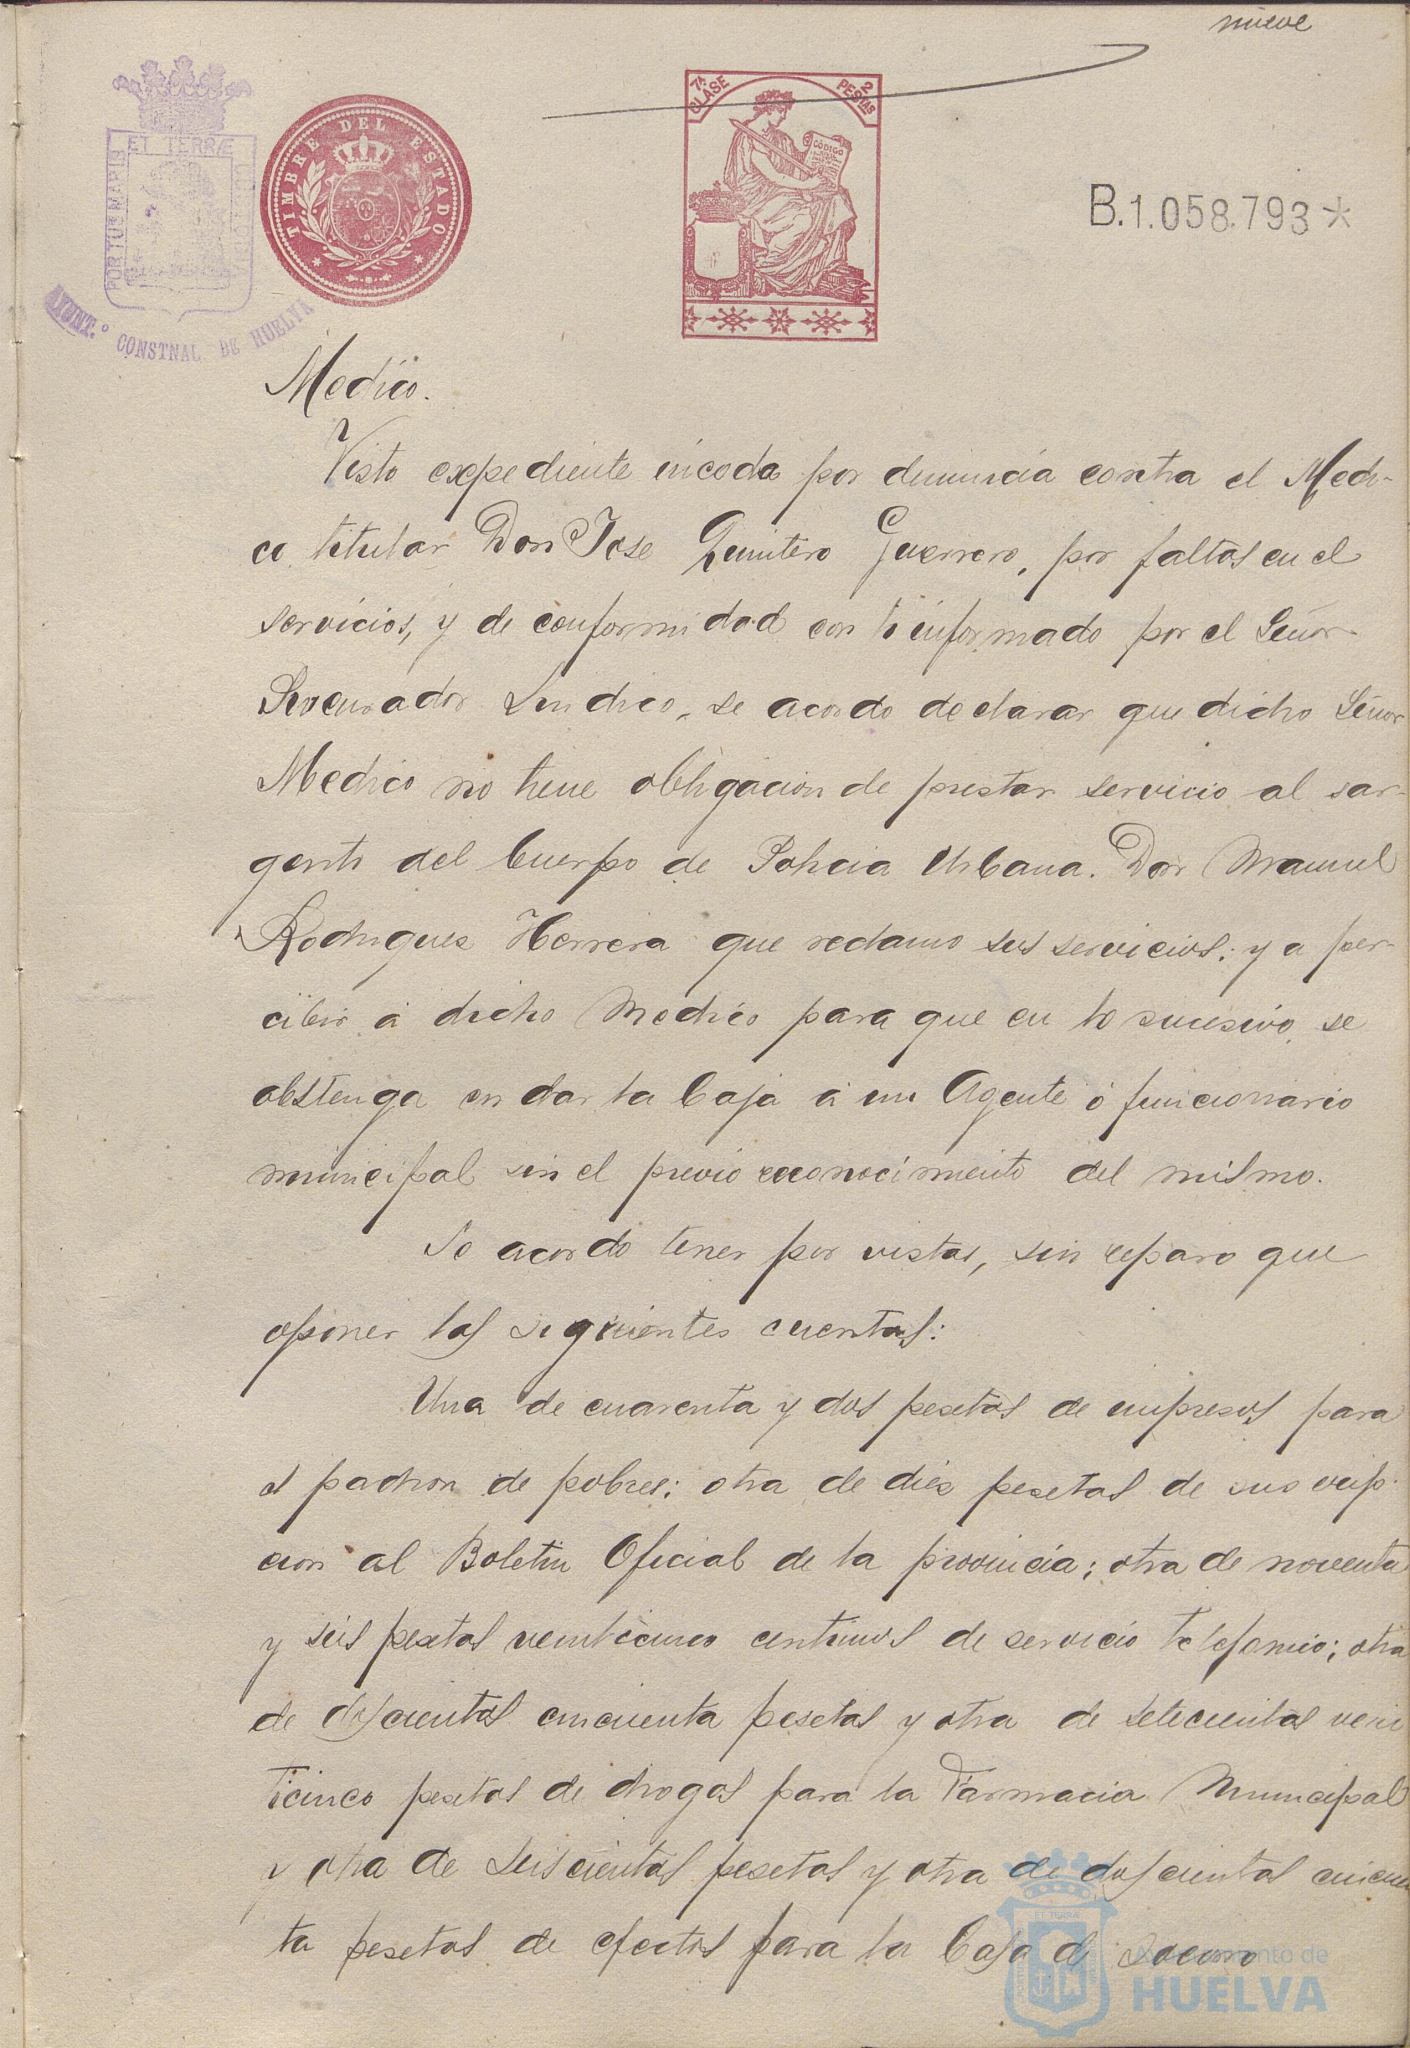 nueve
ET TERRÆ
PORTUS MARIS
TIMBRE DEL ESTADO
7ª CLASE
2 PESTAS
CÓDIGO
B.1.058.793*
AYUNT.º CONSTNAL DE HUELVA
Medico.
Visto expediente incoda por denuncia contra el Medi-
co titular Don Jose Quintero Guerrero, por faltas en el
servicios, y de conformidad con lo informado por el Señor
Procurador Sindico, se acordo declarar que dicho Señor
Medico no tiene obligacion de prestar servicio al sar-
gento del Cuerpo de Policia Urbana. Don Manuel
Rodriguez Herrera que reclamo sus servicios; y a per-
cibir á dicho Medico para que en lo sucesivo se
abstenga en dar la baja á un Agente ó funcionario
municipal sin el previo reconocimiento del mismo.
Se acordo tener por vistas, sin reparo que
oponer las siguientes cuentas:
Una de cuarenta y dos pesetas de impresos para
el padron de pobres; otra de diez pesetas de suscrip-
cion al Boletin Oficial de la provincia; otra de noventa
y seis pesetas veinticinco centimos de servicio telefonico; otra
de doscientas cincuenta pesetas y otra de setecientas vein
ticinco pesetas de drogas para la Farmacia Municipal
y otra de seiscientas pesetas y otra de doscientas cincuen
ta pesetas de efectos para la Casa de Socorro
ET TERRÆ
Ayuntamiento de
HUELVA